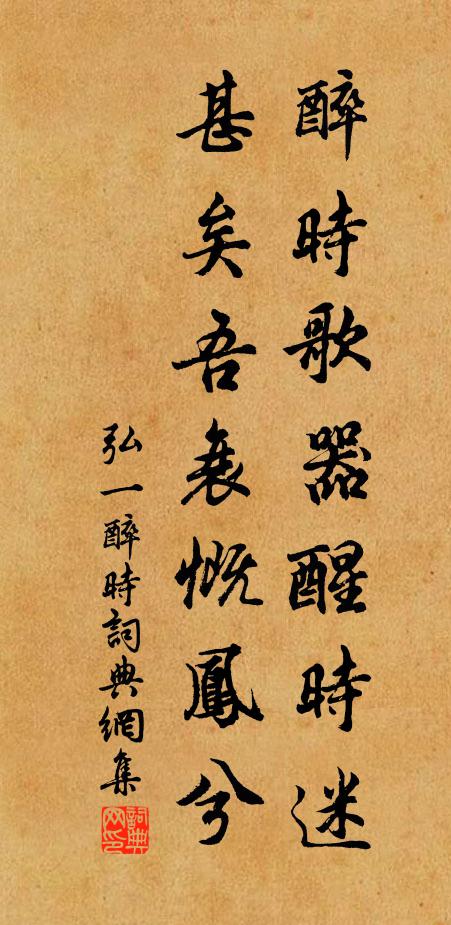 醉時歌器醒時迷
甚矣吾衰慨鳳兮
弘一醉時詞典網集
詞典網印